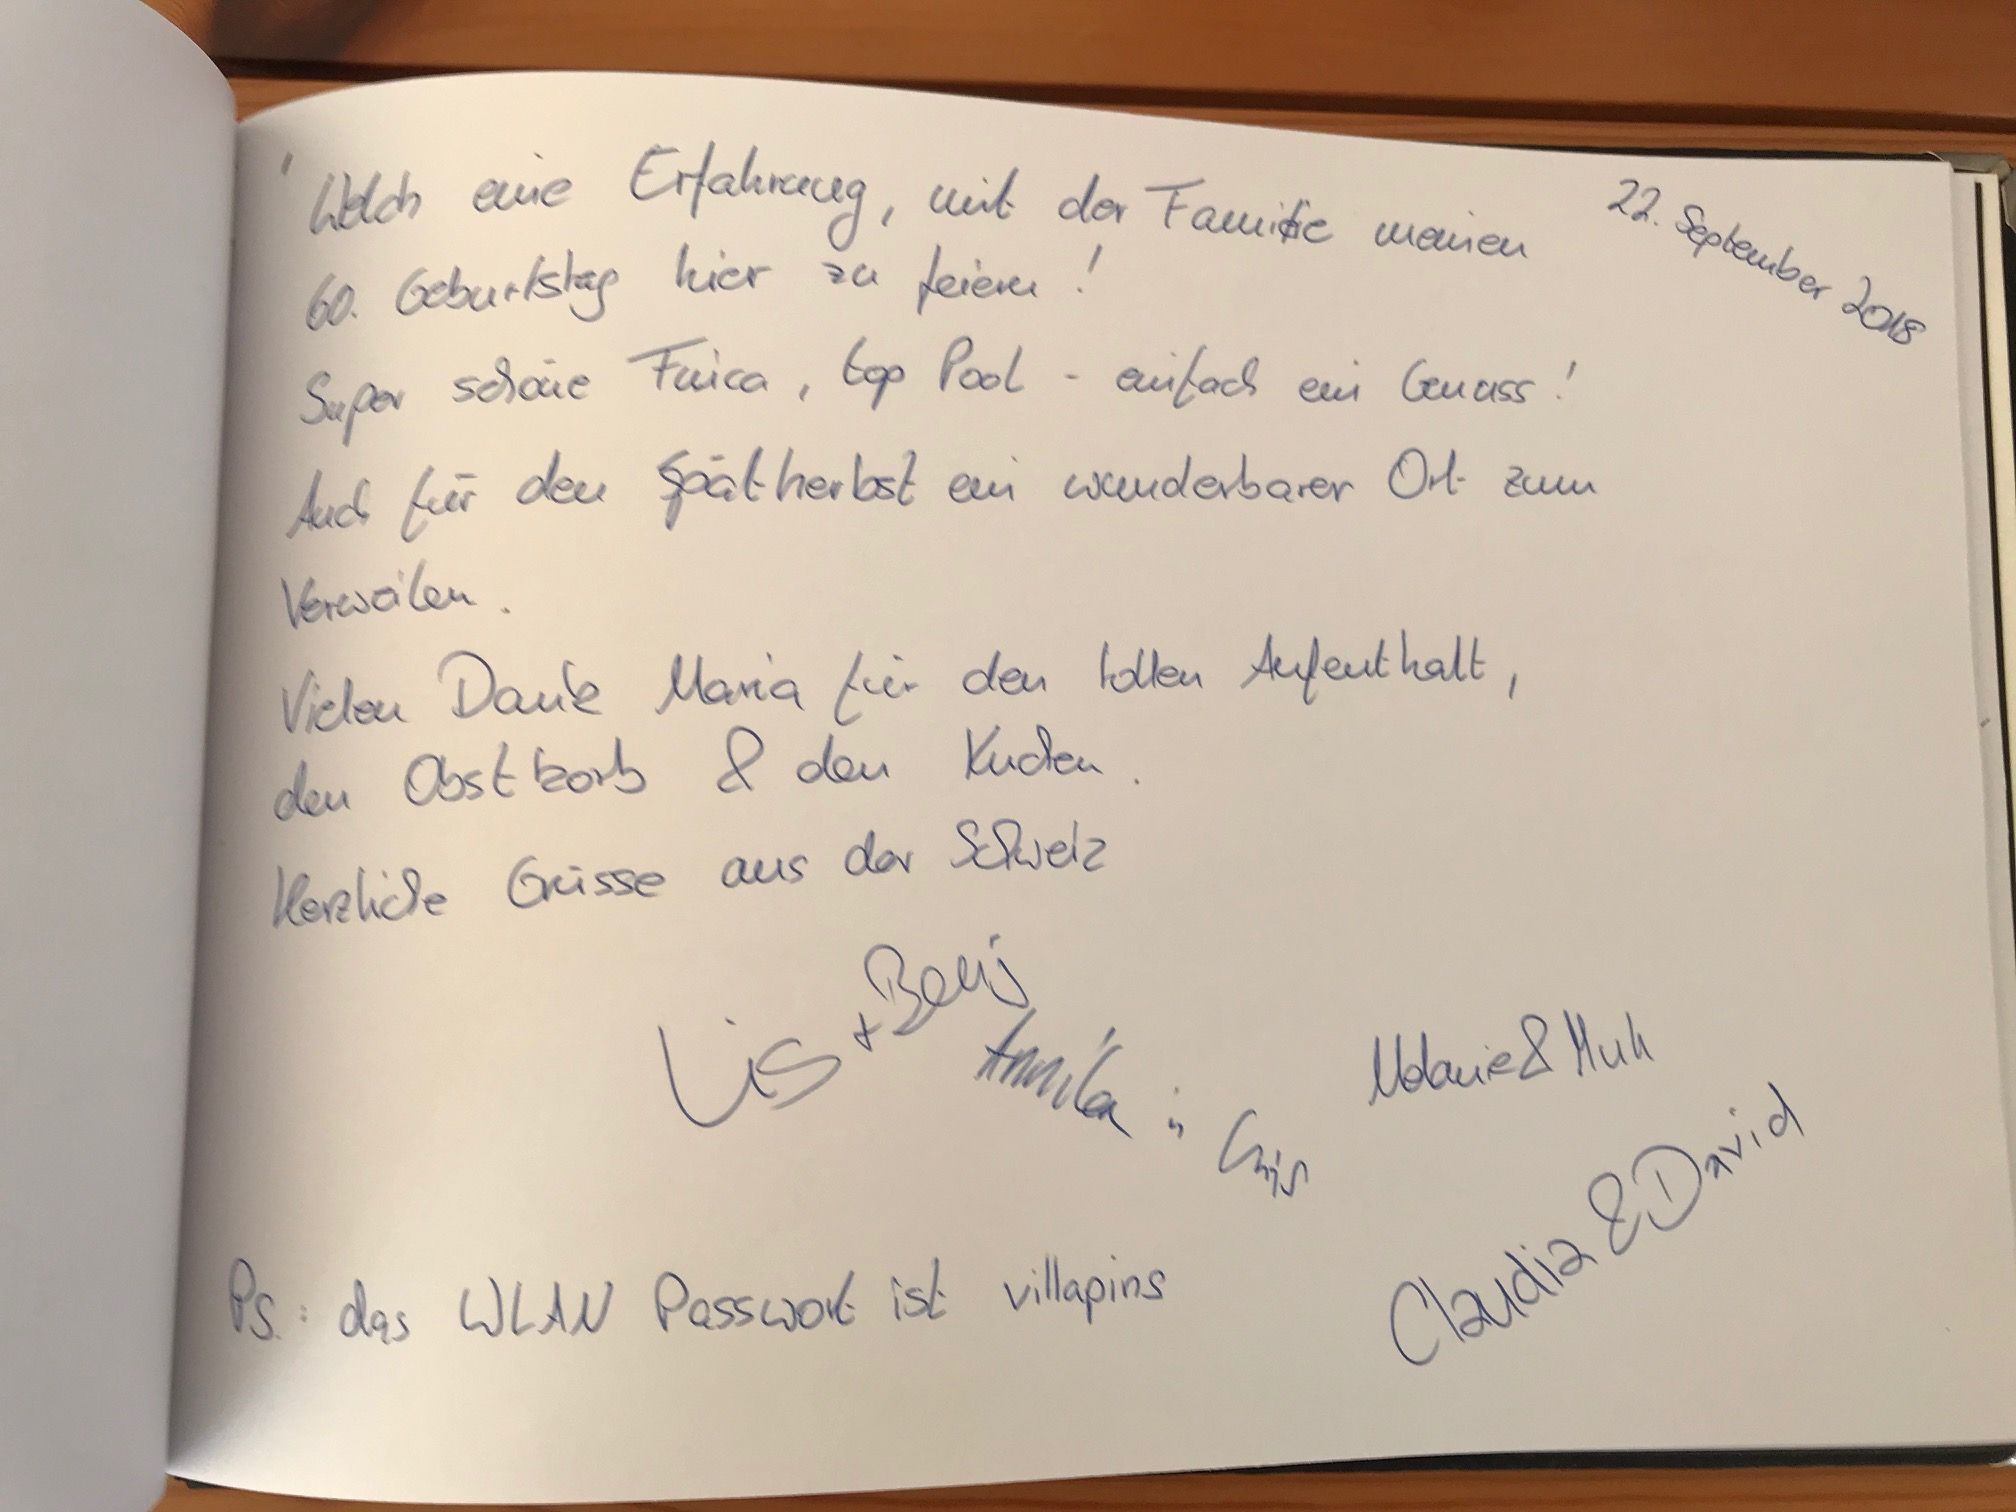 Welch eine Erfahrung, mit der Familie meinen
22. September 2018
60. Geburtstag hier zu feiern!
Super schöne Finca, top Pool - einfach ein Genuss!
Auch für den Spätherbst ein wunderbarer Ort zum
Verweilen.
Vielen Dank Maria für den tollen Aufenthalt,
den Obstkorb & den Kuchen.
Herzliche Grüsse aus der Schweiz
Lis +
Annika
Melanie &
Claudia & David
Ps.: das WLAN Passwort ist villapins